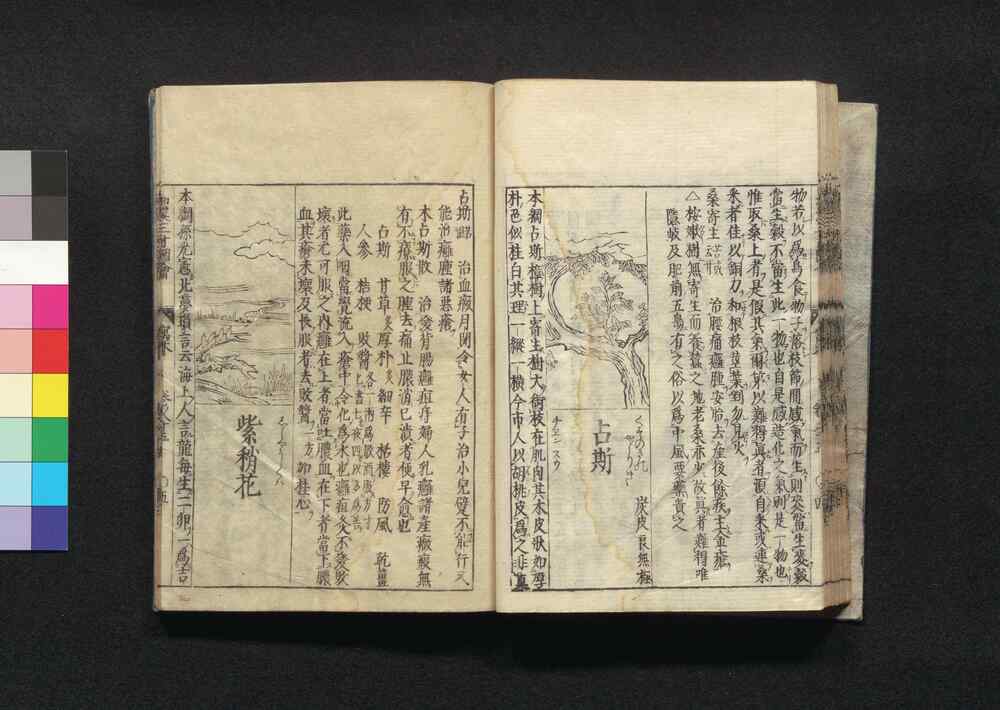 物若以為鳥食物子落枝節間感氣而生則麥當生麥穀
當生穀不當生此一物也自是感造化之氣則是一物也
惟取桑上者是假其氣爾第以難得真者須自采或連桑
采者佳以銅刀和根枝莖葉到勿見火
桑寄生 苦甘 治腰痛癰腫安胎去產後餘疾主金瘡
△桉嫩樹無寄生而養蠶之地老桑亦少故真者難得唯
隱岐及肥前五島有之俗以為中風要藥貴之
占斯
チエン スウ
炭皮 良無極
本綱占斯樟樹上寄生樹大銜枝在肌肉其木皮狀如厚
朴色似桂白其理一縱一橫今市人以胡桃皮爲之非真
占斯 治血瘕月閉令女人有子治小兒躄不能行又
能治癰腫諸惡瘡
木占斯散 治發背腸癰疽痔婦人乳癰諸產癥瘕無
有不療服之腫去痛止膿消已潰者便早愈也
占斯 甘草 厚朴 細辛 栝樓 防風 乾薑
人參 桔梗 敗醬 各一兩爲散酒服方寸
此藥入咽當覺流入瘡中令化爲水也癰疽灸不發敗
壞者尤可服之內癰在上者當吐膿血在下者當下膿
血其瘡未壞及長服者去敗醬一方加桂心
紫稍花
本綱孫光憲北夢瑣言云海上人言龍每生二卵一爲吉